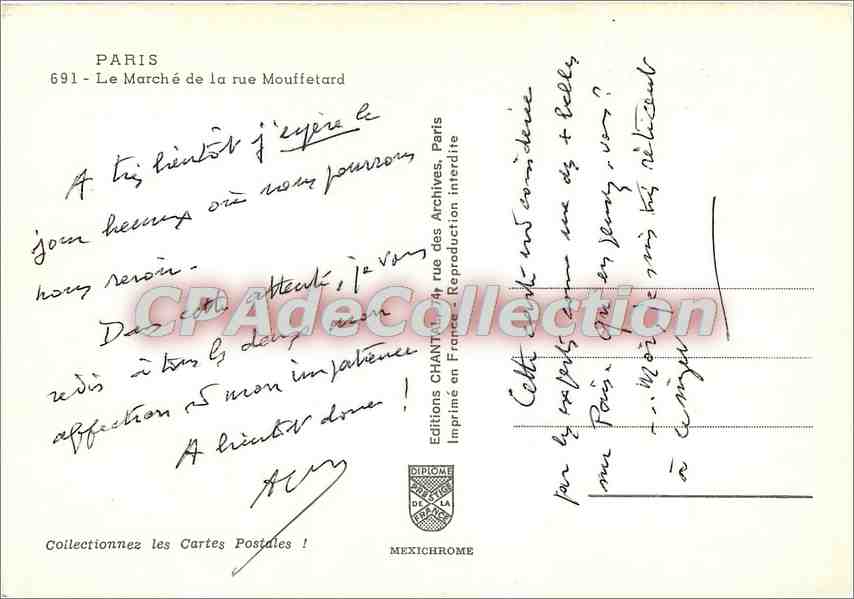 PARIS
691 - Le Marché de la rue Mouffetard
A très bientôt j'espère le
jour heureux où nous pourrons
nous revoir.
Dans cette attente, je vous
redis à tous les deux mon
affection et mon impatience
A bientôt donc !
Collectionnez les Cartes Postales !
Editions CHANTAL, 74, rue des Archives, Paris
Imprimé en France - Reproduction interdite
CPAdeCollection
DIPLOME
PRESTIGE
DE LA
FRANCE
MEXICHROME
Cette carte est considérée
par les experts comme une des + belles
sur Paris. Qu'en pensez-vous ?
Moi, je suis très réticent
à ce sujet